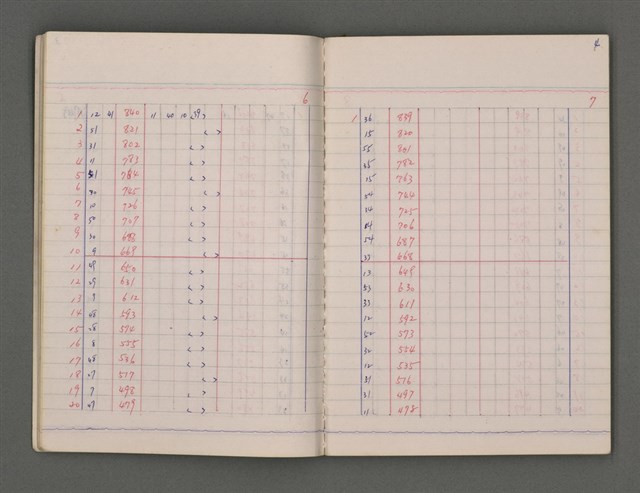 6
1 12 41 840 11 40 10 39>
2 31 821 < >
3 21 802 < >
4 11 783 < >
5 764 < >
6 745 < >
7 10 726 < >
8 50 707 < >
9 30 688 < >
10 9 669 < >
11 49 650 < >
12 29 631 < >
13 9 612 < >
14 48 593 < >
15 28 574 < >
16 8 555 < >
17 48 536 < >
18 27 517 < >
19 7 498 < >
20 47 479 < >
4
7
1 36 839
15 820
55 801
35 782
15 763
54 744
34 725
14 706
54 687
33 668
13 649
53 630
33 611
12 592
52 573
32 554
12 535
31 516
31 497
11 478